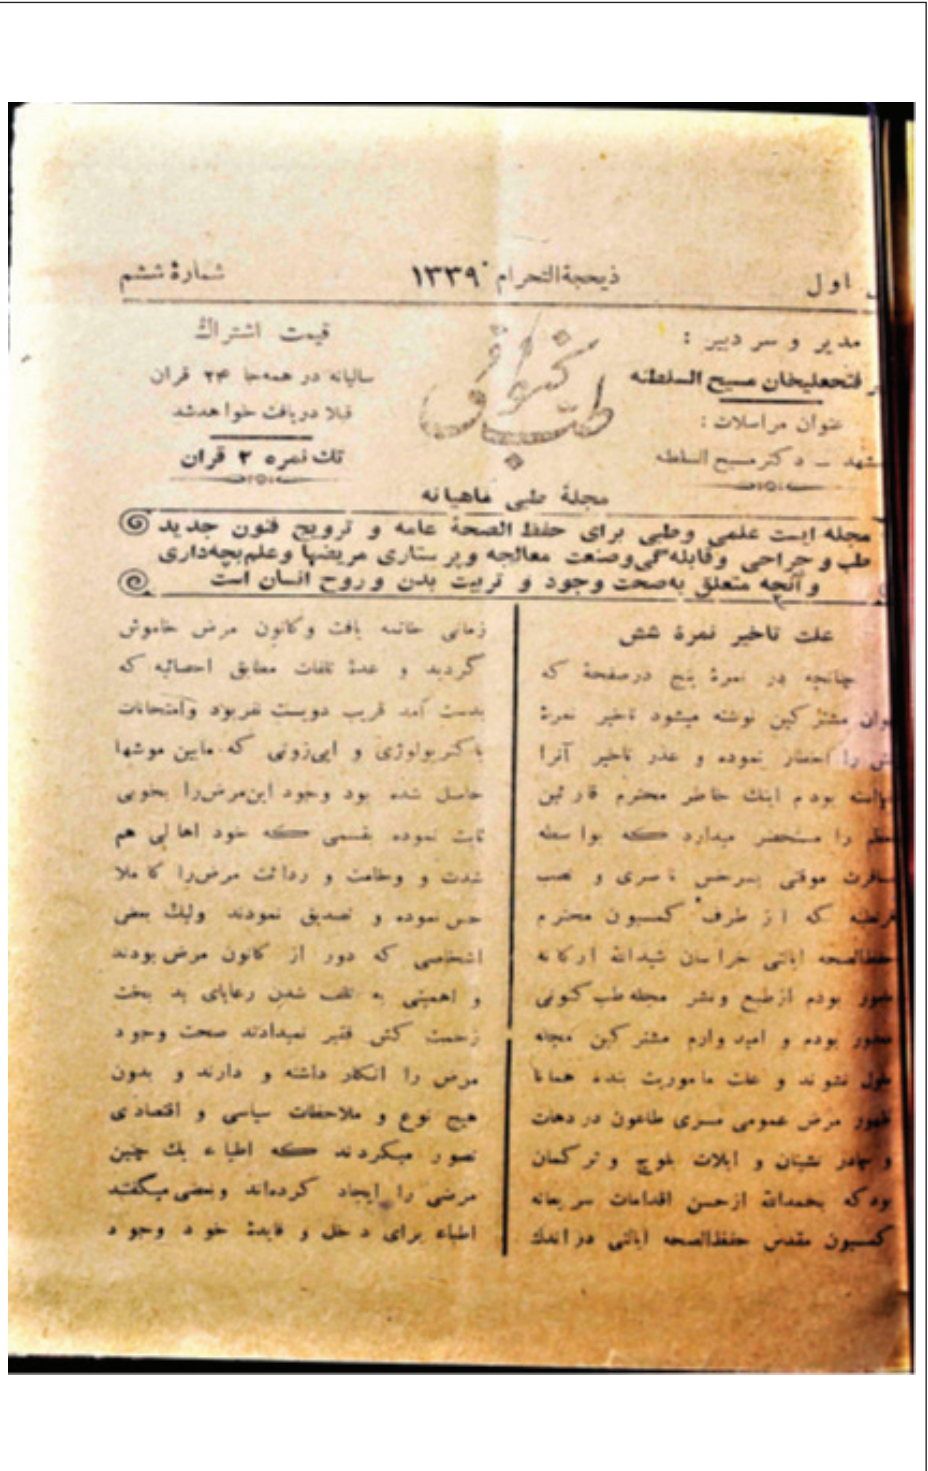 اول
ذیحجةالتحرام ۱۳۳۹
شمارهٔ ششم
مدیر و سر دبیر :
فتحعلیخان مسیح السلطنه
عنوان مراسلات :
دکتر مسیح السلطنه
طب
قیمت اشتراك
سالیانه در همه‌جا ۲۴ قران
قبلا دریافت خواهدشد
تك نمره ۲ قران
مجلهٔ طبی ماهیانه
مجله ایست علمی وطبی برای حفظ الصحهٔ عامه و ترویج فنون جدید
طب و جراحی وقابله گی‌وصنعت معالجه وپرستاری مریضها وعلم‌بچه‌داری
و آنچه متعلق به‌صحت وجود و تربیت بدن وروح انسان است
علت تاخیر نمرهٔ شش
چنانچه در نمرهٔ پنج درصفحهٔ که
مشترکین نوشته میشود تاخیر نمرهٔ
را اخطار نموده و عذر تاخیر آنرا
بودم اینك خاطر محترم قارئین
را مستحضر میدارد که بواسطه
مسافرت موقتی بسرخس ناصری و نصب
که از طرف کمسیون محترم
حفظالصحه ایالتی خراسان شیدالله ارکانه
بودم ازطبع ونشر مجله‌طب کنونی
بودم و امید وارم مشترکین مجله
ملول نشوند و علت ماموریت بنده همانا
ظهور مرض عمومی مسری طاعون در دهات
و چادر نشینان و ایلات بلوچ و ترکمان
بودکه بحمدالله ازحسن اقدامات سریعانه
کمسیون مقدس حفظالصحه ایالتی در اندك
زمانی خاتمه یافت وکانون مرض خاموش
گردید و عدهٔ تلفات مطابق احصائیه که
بدست آمد قریب دویست نفربود وامتحانات
باکتریولوژی و اپی‌زوتی که مابین موشها
حاصل شده بود وجود این‌مرض‌را بخوبی
ثابت نموده بقسمی که خود اهالی هم
شدت و وخامت و ردائت مرض‌را کاملا
حس نموده و تصدیق نمودند ولیك بعضی
اشخاصی که دور از کانون مرض بودند
و اهمیتی به تلف شدن رعایای بد بخت
زحمت کش فقیر نمیدادند صحت وجود
مرض را انکار داشته و دارند و بدون
هیچ نوع و ملاحظات سیاسی و اقتصادی
تصور میکردند که اطباء یك چنین
مرضی را ایجاد کرده‌اند وبعضی‌میگفتند
اطباء برای دخل و فایدهٔ خود وجود